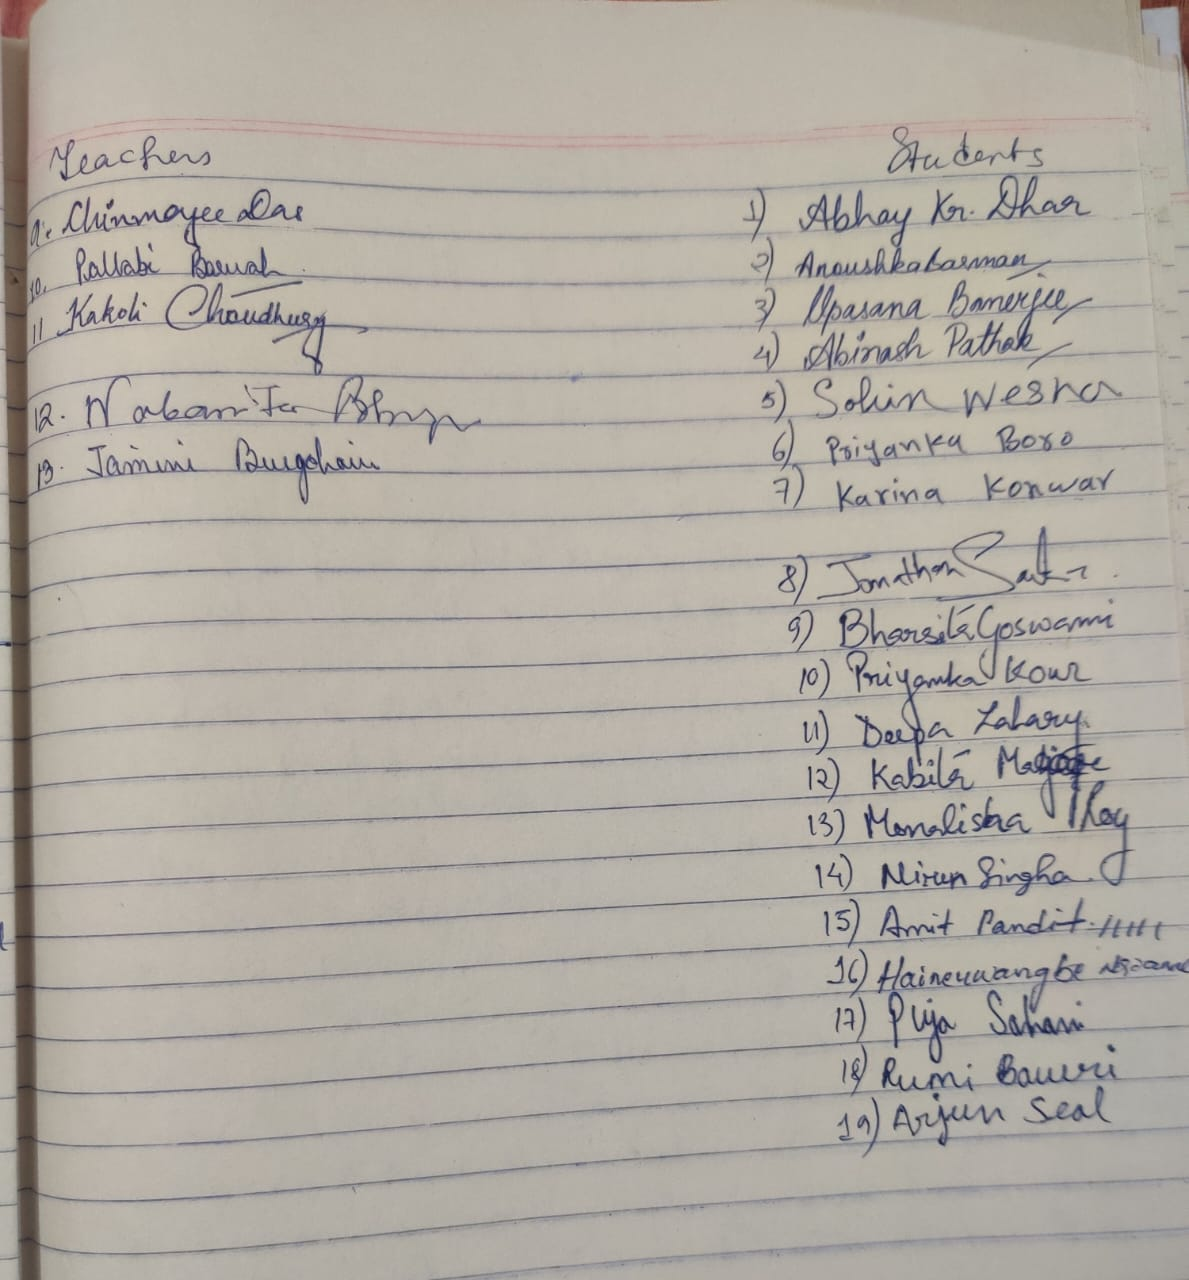 Teachers
9. Chinmoyee Das
10. Pallabi Baruah
11 Kakoli Choudhury
12. Nabanita
13. Jamini Burgohain
Students
1) Abhay Kr. Dhar
2) Anoushka Barman
3) Upasana Banerjee
4) Abinash Pathak
5) Sohin
6) Priyanka Boro
7) Karina Konwar
8) Jonathan
9) Bharsita Goswami
10) Priyanka Kour
11) Deepa Zahary
12) Kabita
13) Monalisha Roy
14) Nirup Singha
15) Amit Pandit
16)
17) Puja Sahani
18) Rumi Bauri
19) Arjun Seal